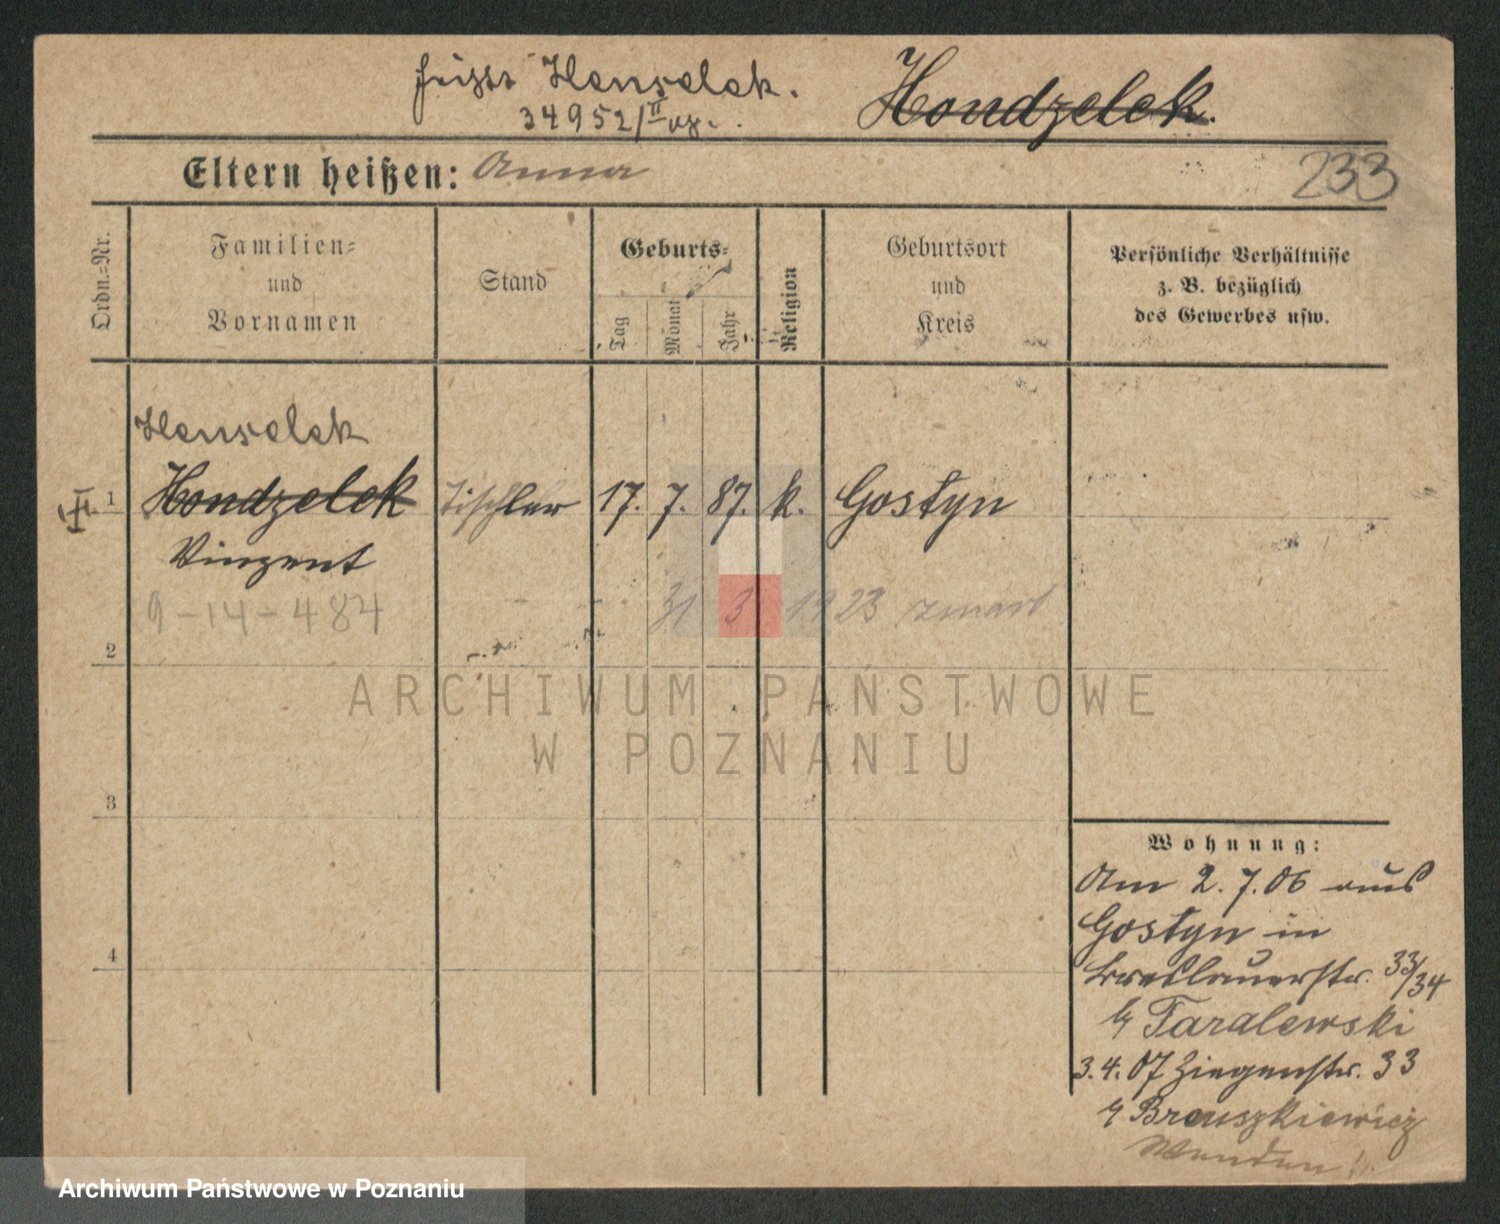 heißt Henselek.
34952/II
Hondzelek.
Eltern heißen: Anna
233
Ordn.-Nr.
Familien-
und
Vornamen
Stand
Geburts-
Tag
Monat
Jahr
Religion
Geburtsort
und
Kreis
Persönliche Verhältnisse
z. B. bezüglich
des Gewerbes usw.
Henselek
1 Hondzelek Tischler 17. 7. 87. k. Gostyn
Vinzent
9-14-484 31 3 1923 zmarł
2
3
4
Wohnung:
Am 2.7.06 aus
Gostyn in
Breslauerstr. 33/34
b/ Taralewski
3.4.07 Ziegenstr. 33
b/ Breuszkiewicz
Wenden!
ARCHIWUM PAŃSTWOWE
W POZNANIU
Archiwum Państwowe w Poznaniu